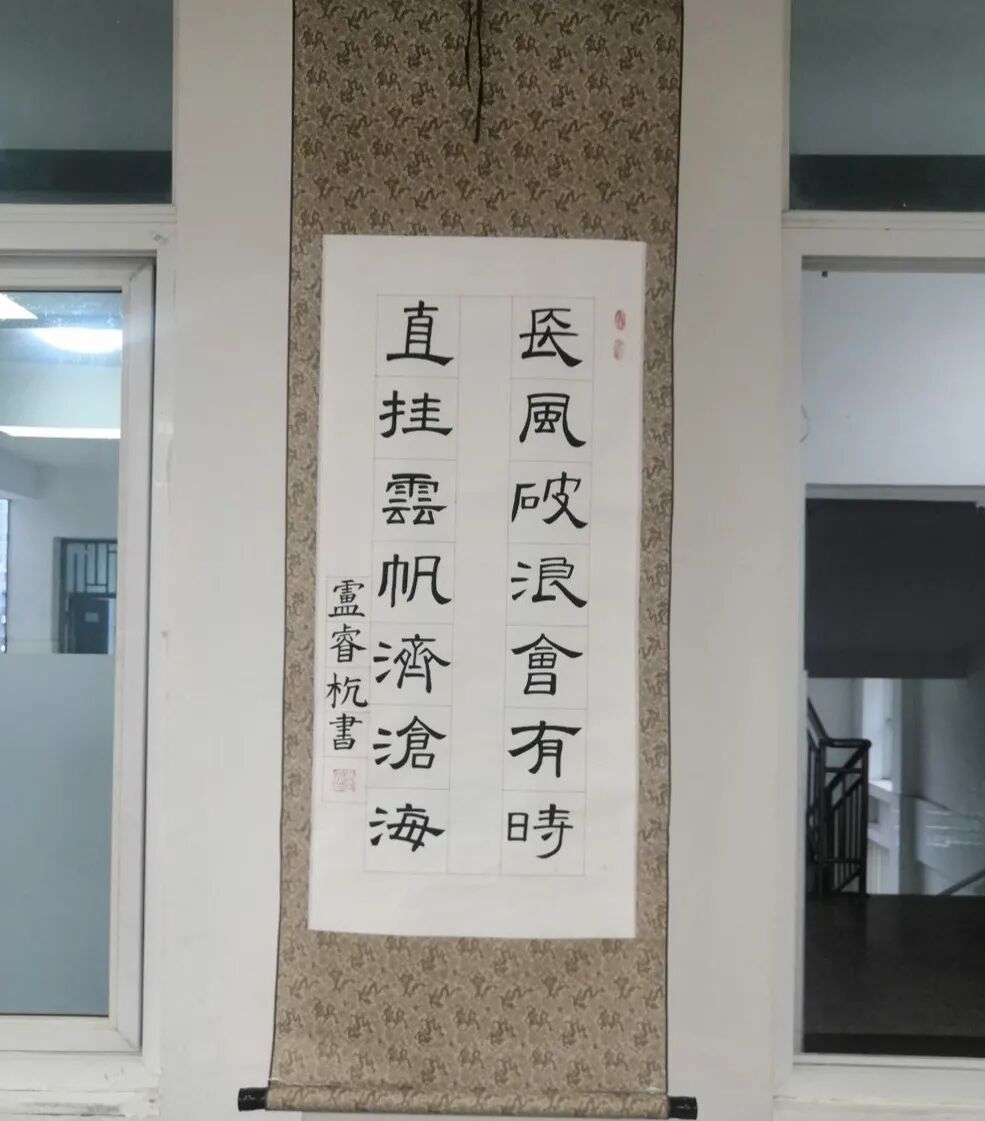 長風破浪會有時
直挂雲帆濟滄海
盧睿杭書